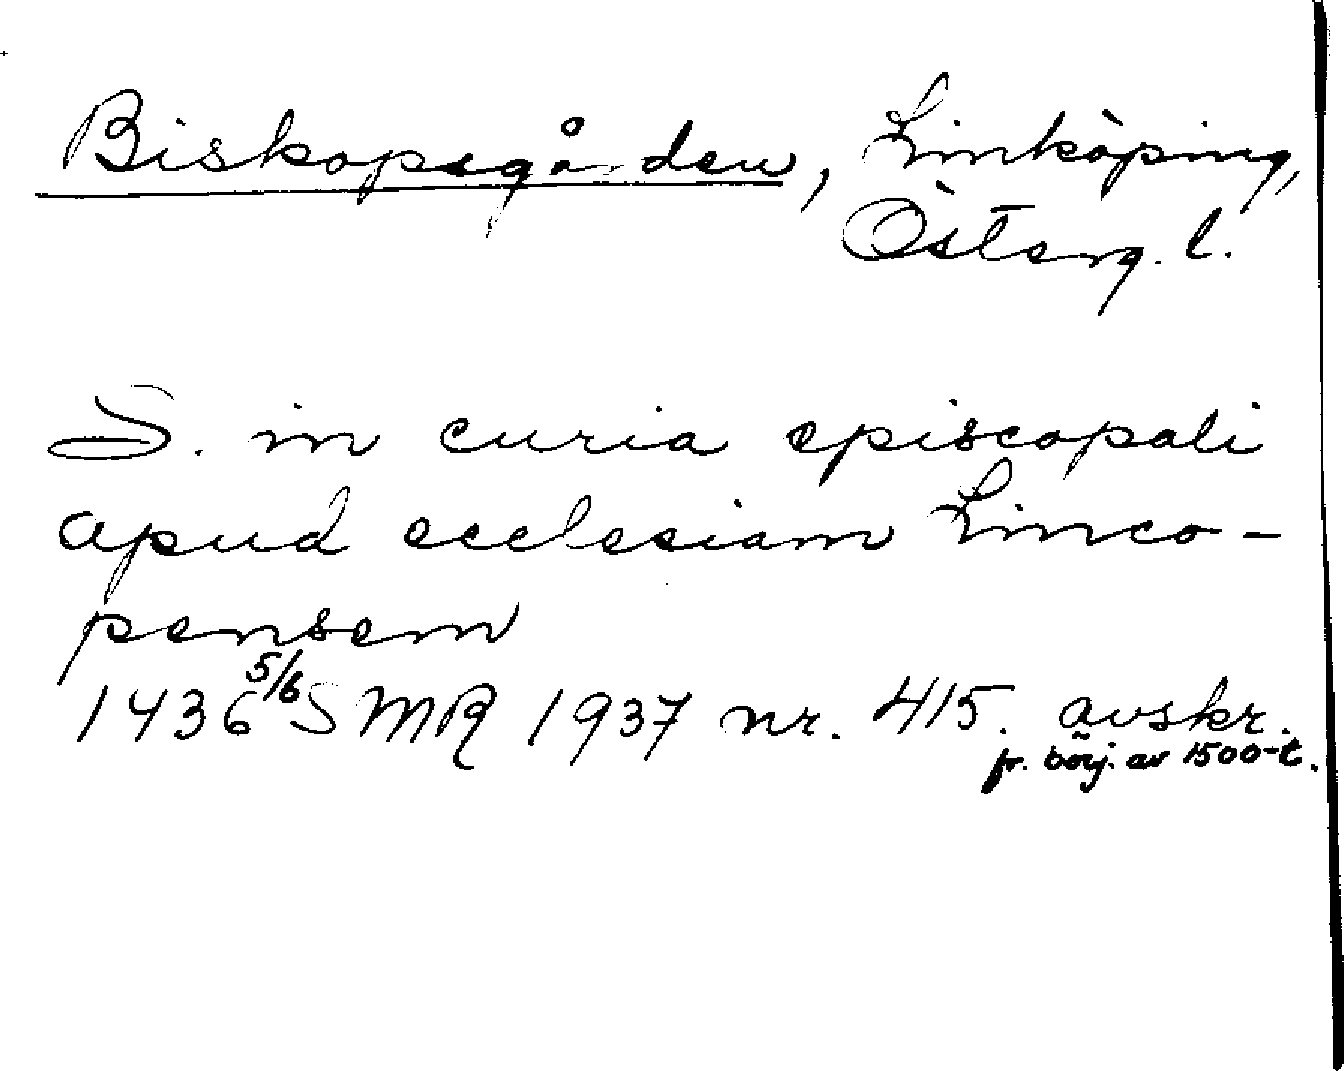 Biskopsgården, Linköping,
Österg. l.
S. in curia episcopali
apud ecclesiam Linco-
pensem
1436 5/6 SMR 1937 nr. 415. avskr.
fr. börj. av 1500-t.